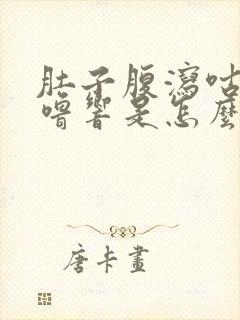 肚子腹瀉咕
嚕響是怎麼
唐卡畫